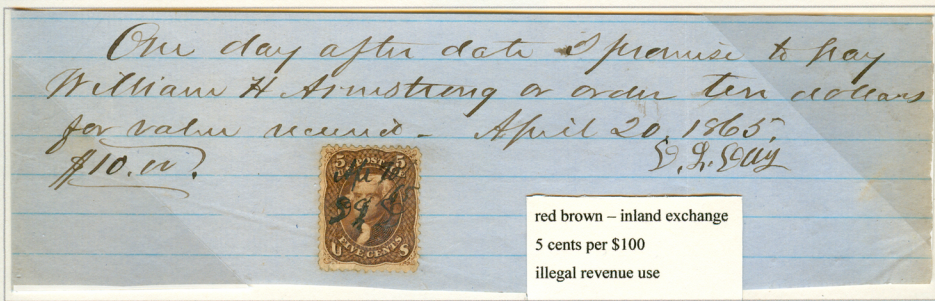 One day after date I promise to pay
William H Armstrong or order ten dollars
for value received - April 20, 1865.
$10.00.
5 POST 5
FIVE CENTS
U S
red brown – inland exchange
5 cents per $100
illegal revenue use